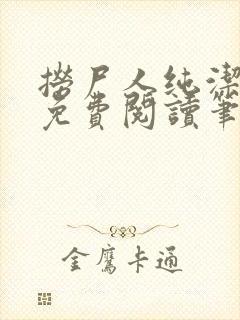 撈尸人純潔
免費閱讀筆
金鷹卡通